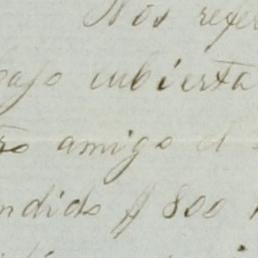 Nos refer
bajo cubierta
tro amigo d
ndido $ 800